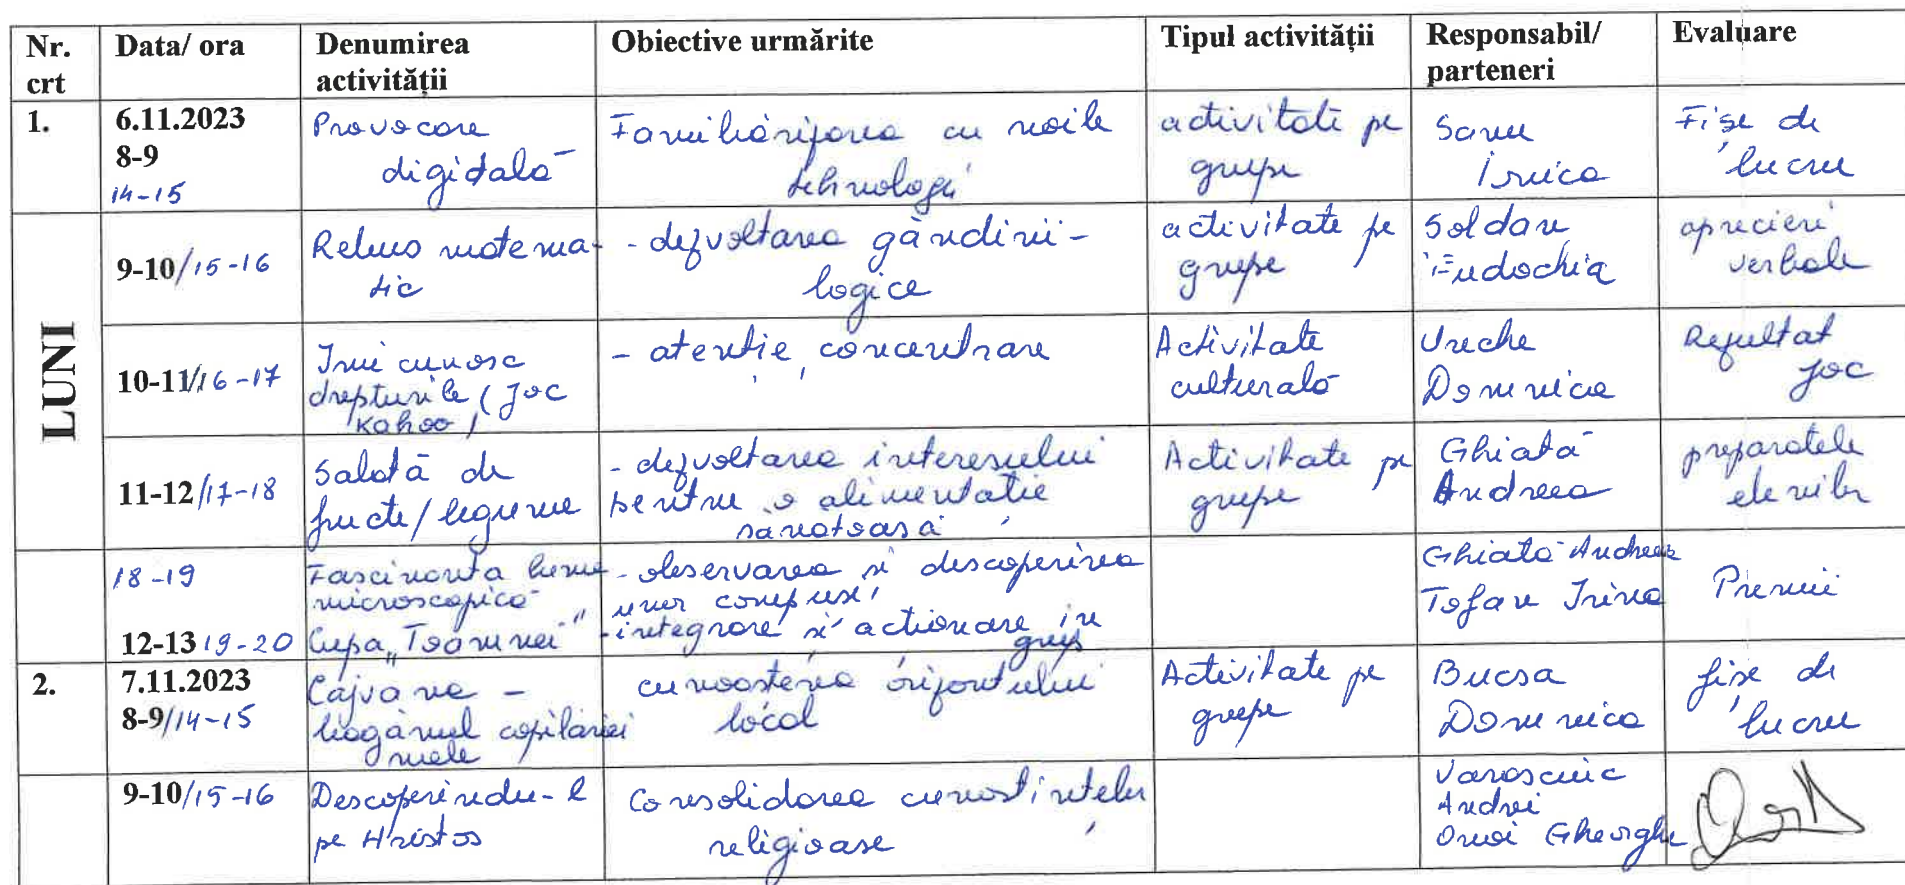 Nr. crt Data/ ora Denumirea activității Obiective urmărite Tipul activității Responsabil/ parteneri Evaluare
1. 6.11.2023
8-9
14-15
Provocare
digitală
Familiarizarea cu noile
tehnologii
activitate pe
grupe
Sanu
Irina
Fișe de
lucru
LUNI
9-10/15-16
Rebus matema-
tic
- dezvoltarea gândirii -
logice
activitate pe
grupe
Soldan
Eudochia
aprecieri
verbale
10-11/16-17
Îmi cunosc
drepturile (Joc
Kahoo)
- atenție, concentrare
Activitate
culturală
Ureche
Domnica
Rezultat
joc
11-12/17-18
Salată de
fructe/legume
- dezvoltarea interesului
pentru o alimentație
sănătoasă
Activitate pe
grupe
Ghiată
Andreea
preparatele
elevilor
18-19
12-13 19-20
Fascinanta lume
microscopică
Cupa „Toamnei"
- observarea și descoperirea
unor
- integrare și acționare în
grup
Ghiată Andreea
Tofan Irina
Premii
2. 7.11.2023
8-9/14-15
Cajvana -
leagănul copilăriei
mele
cunoașterea orizontului
local
Activitate pe
grupe
Bucsa
Domnica
fișe de
lucru
9-10/15-16
Descoperindu-l
pe Hristos
Consolidarea cunoștințelor
religioase
Andrei
Gheorghe